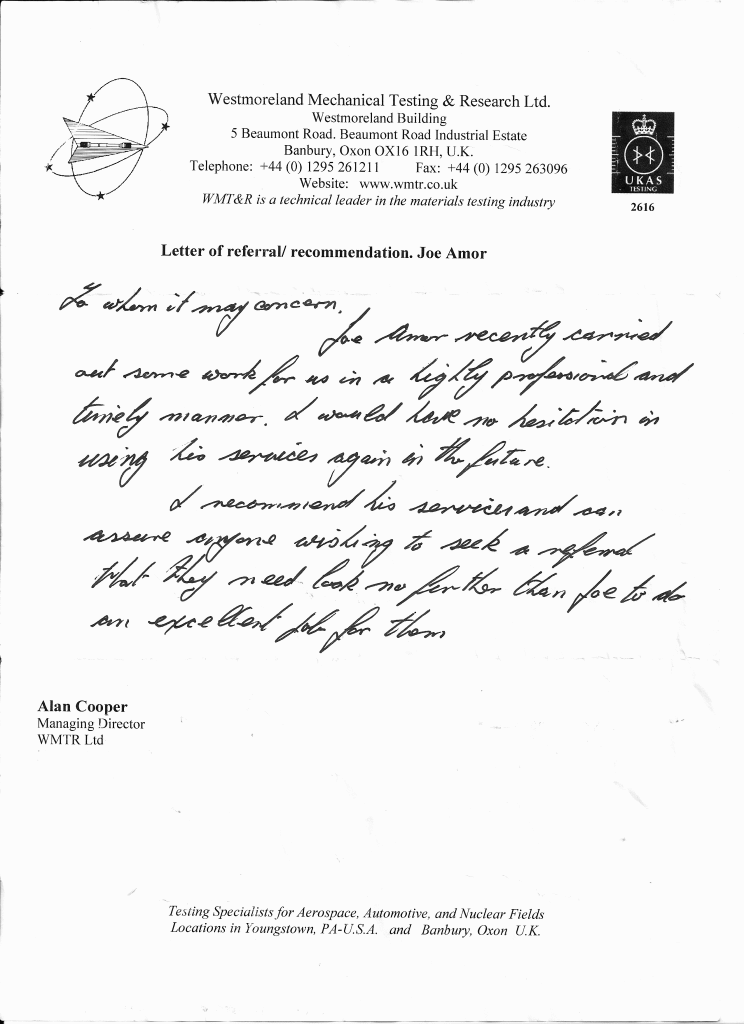 Westmoreland Mechanical Testing & Research Ltd.
Westmoreland Building
5 Beaumont Road. Beaumont Road Industrial Estate
Banbury, Oxon OX16 1RH, U.K.
Telephone: +44 (0) 1295 261211 Fax: +44 (0) 1295 263096
Website: www.wmtr.co.uk
WMT&R is a technical leader in the materials testing industry
UKAS
TESTING
2616
Letter of referral/ recommendation. Joe Amor
To whom it may concern.
Joe Amor recently carried
out some work for us in a highly professional and
timely manner. I would have no hesitation in
using his services again in the future.
I recommend his services and can
assure anyone wishing to seek a referral
that they need look no further than Joe to do
an excellent job for them
Alan Cooper
Managing Director
WMTR Ltd
Testing Specialists for Aerospace, Automotive, and Nuclear Fields
Locations in Youngstown, PA-U.S.A. and Banbury, Oxon U.K.